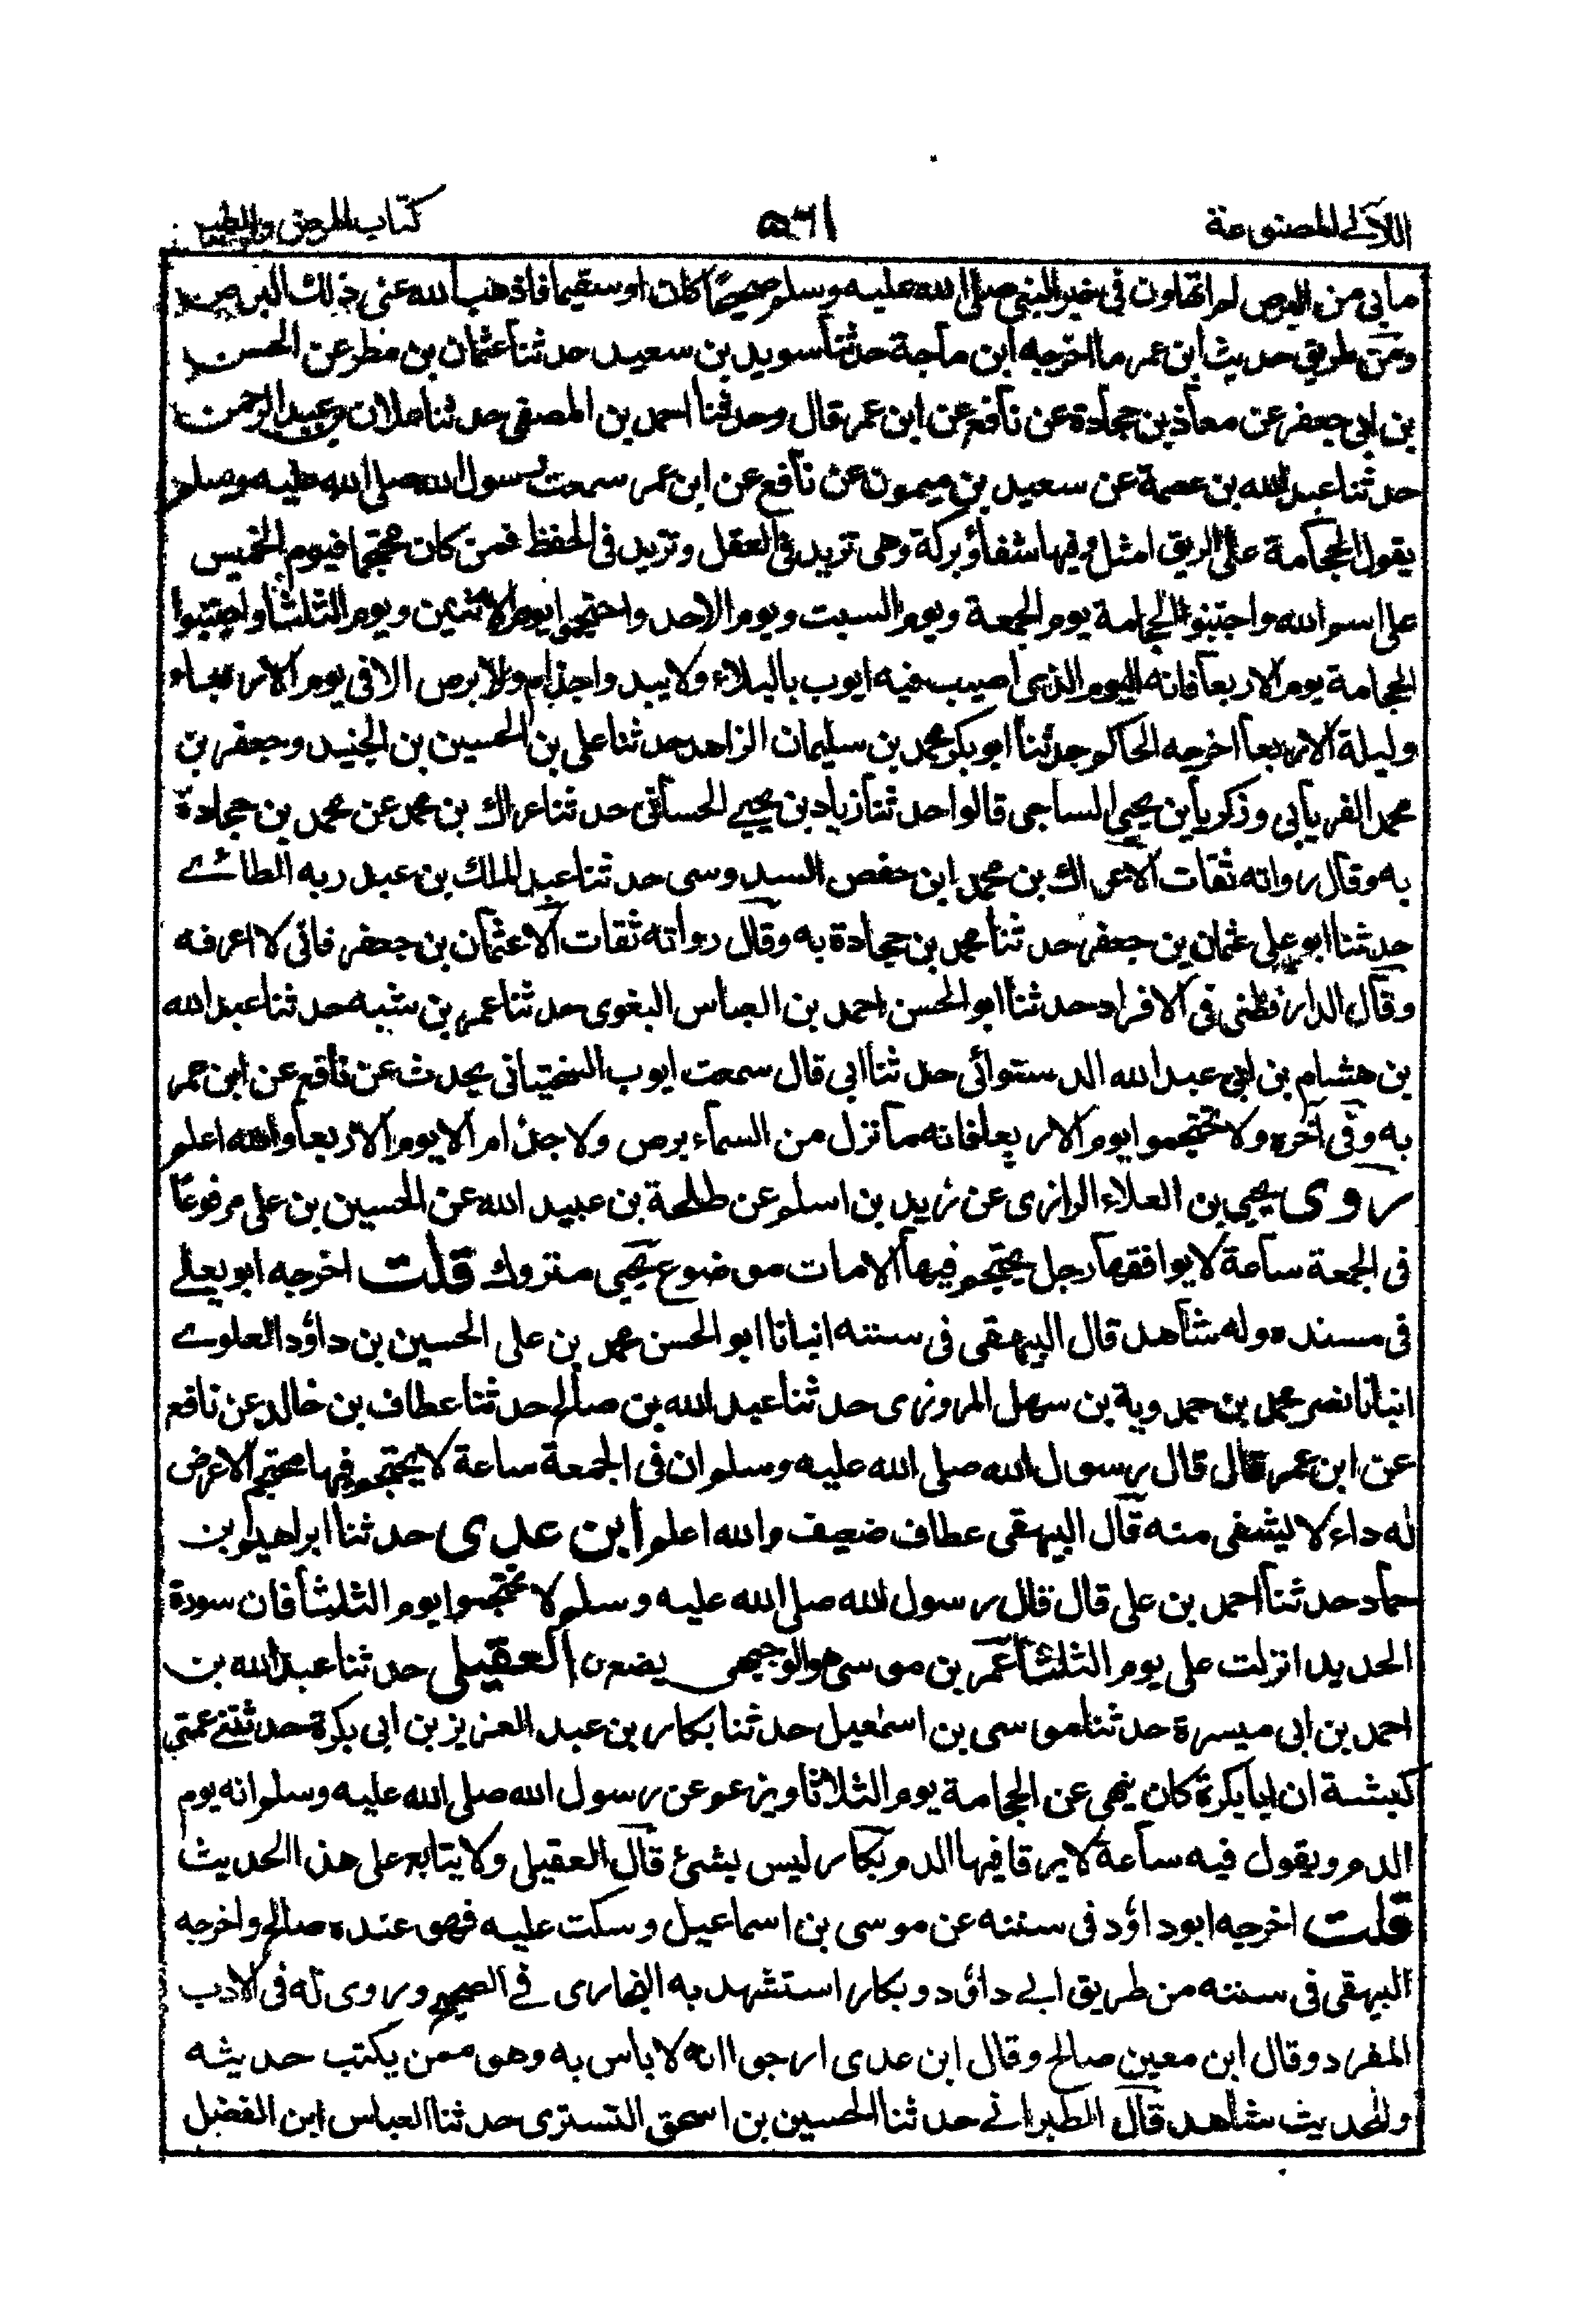 اللآلی المصنوعة ۵۲۱ کتاب المرض والطب
مابی من البرص لم اتهاون فی خبر النبی صلی الله علیه وسلم صحیحًا کان اوسقیما فاذهب الله عنی ذلك البرص
ومن طریق حدیث ابن عمر ما اخرجه ابن ماجة حدثنا سوید بن سعید حدثنا عثمان بن مطر عن الحسن
بن ابی جعفر عن معاذ بن جحادة عن نافع عن ابن عمر قال وحدثنا احمد بن المصفی حدثنا عثمان بن عبد الرحمن
حدثنا عبد الله بن عصمة عن سعید بن میمون عن نافع عن ابن عمر سمعت رسول الله صلی الله علیه وسلم
یقول الحجامة علی الریق امثل وفیها شفاؤ برکة وهی تزید فی العقل وتزید فی الحفظ فمن کان محتجما فیوم الخمیس
علی اسم الله واجتنبوا الحجامة یوم الجمعة ویوم السبت ویوم الاحد واحتجموا یوم الاثنین ویوم الثلثا واجتنبوا
الحجامة یوم الاربعا فانه الیوم الذی اصیب فیه ایوب بالبلاء ولا یبد واجذام ولا برص الا فی یوم الاربعاء
ولیلة الاربعا اخرجه الحاکم حدثنا ابو بکر محمد بن سلیمان الزاهد حدثنا علی بن الحسین بن الجنید وجعفر بن
محمد الفریابی وذکریا بن یحیی الساجی قالوا حدثنا زیاد بن یحیی الحسانی حدثنا عراك بن محمد عن محمد بن جحادة
به وقال رواته ثقات الا عراك بن محمد ابن حفص السدوسی حدثنا عبد الملك بن عبد ربه الطائے
حدثنا ابو علی عثمان بن جعفر حدثنا محمد بن جحادة به وقال رواته ثقات الا عثمان بن جعفر فانی لا اعرفه
وقال الدارقطنی فی الافراد حدثنا ابو الحسن احمد بن العباس البغوی حدثنا عمر بن شبه حدثنا عبد الله
بن هشام بن ابی عبد الله الدستوائی حدثنا ابی قال سمعت ایوب السختیانی یحدث عن نافع عن ابن عمر
به وفی آخره ولا تحتجموا یوم الاربعا فانه ما نزل من السماء برص ولا جذام الا یوم الاربعا والله اعلم
روی یحیی بن العلاء الرازی عن زید بن اسلم عن طلحة بن عبید الله عن الحسین بن علی مرفوعًا
فی الجمعة ساعة لا یوافقها رجل یحتجم فیها الامات موضوع یحیی متروك قلت اخرجه ابو یعلے
فی مسنده وله شاهد قال البیهقی فی سننه انبانا ابو الحسن محمد بن علی الحسین بن داؤد العلوے
انبانا نصر محمد بن حمدویة بن سهل المروزی حدثنا عبد الله بن صالح حدثنا عطاف بن خالد عن نافع
عن ابن عمر قال قال رسول الله صلی الله علیه وسلم ان فی الجمعة ساعة لا یحتجم فیها محتجم الا عرض
له داء لا یشفی منه قال البیهقی عطاف ضعیف والله اعلم ابن عدی حدثنا ابراهیم بن
حماد حدثنا احمد بن علی قال قال رسول الله صلی الله علیه وسلم لا تحتجموا یوم الثلثا فان سورة
الحدید انزلت علی یوم الثلثا عمر بن موسی هو الوجیهی یضع العقیلی حدثنا عبد الله بن
احمد بن ابی میسرة حدثنا موسی بن اسمٰعیل حدثنا بکار بن عبد العزیز بن ابی بکرة حدثتنے عمتی
کبشة ان ابا بکرة کان ینهی عن الحجامة یوم الثلاثا ویزعم عن رسول الله صلی الله علیه وسلم انه یوم
الدم ویقول فیه ساعة لا یرقا فیها الدم بکار لیس بشئ قال العقیلی ولا یتابع علی هذا الحدیث
قلت اخرجه ابو داؤد فی سننه عن موسی بن اسماعیل وسکت علیه فهو عنده صالح واخرجه
البیهقی فی سننه من طریق ابے داؤد وبکار استشهد به البخاری فے الصحیح وروی له فی الادب
المفرد وقال ابن معین صالح وقال ابن عدی ارجوا انه لا باس به وهو ممن یکتب حدیثه
وللحدیث شاهد قال الطبرانے حدثنا الحسین بن اسحق التستری حدثنا العباس ابن الفضل